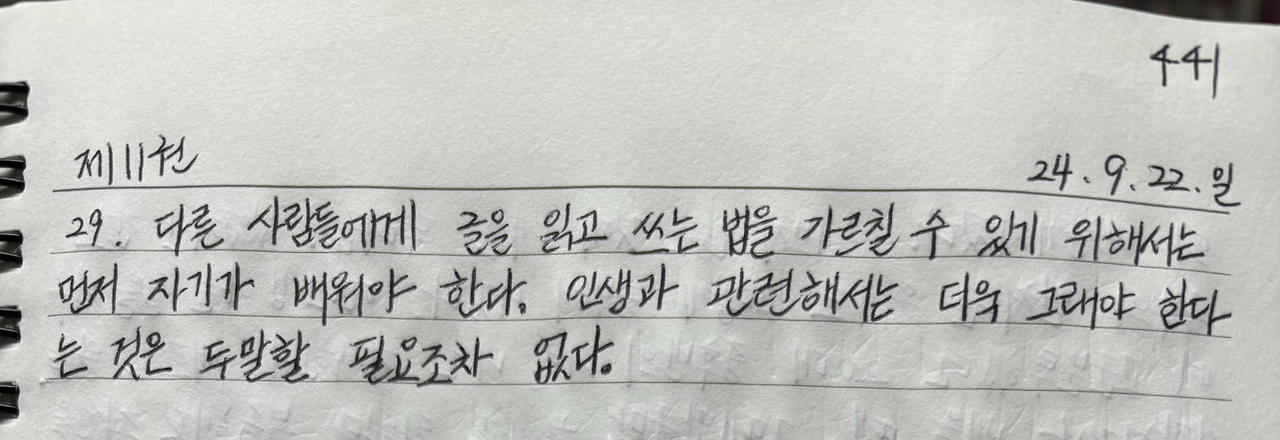 441
제11권
24.9.22.일
29. 다른 사람들에게 글을 읽고 쓰는 법을 가르칠 수 있기 위해서는
먼저 자기가 배워야 한다. 인생과 관련해서는 더욱 그래야 한다
는 것은 두말할 필요조차 없다.